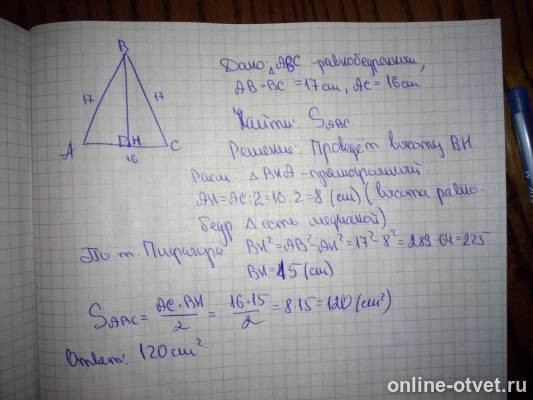 B
17
17
A
H
C
16
Дано: △ABC - равнобедренный,
AB=BC=17см, AC=16см.
Найти: S ABC
Решение: Проведём высоту BH.
Расм. △BHA - прямоугольный.
AH=AC:2=16:2=8 (см) (высота равно-
бедр △ есть медианой)
По т. Пифагора BH²=AB²-AH²=17²-8²=289-64=225
BH=15 (см)
S ABC = AC·BH/2 = 16·15/2 = 8·15=120 (см²)
Ответ: 120 см².
online-otvet.ru